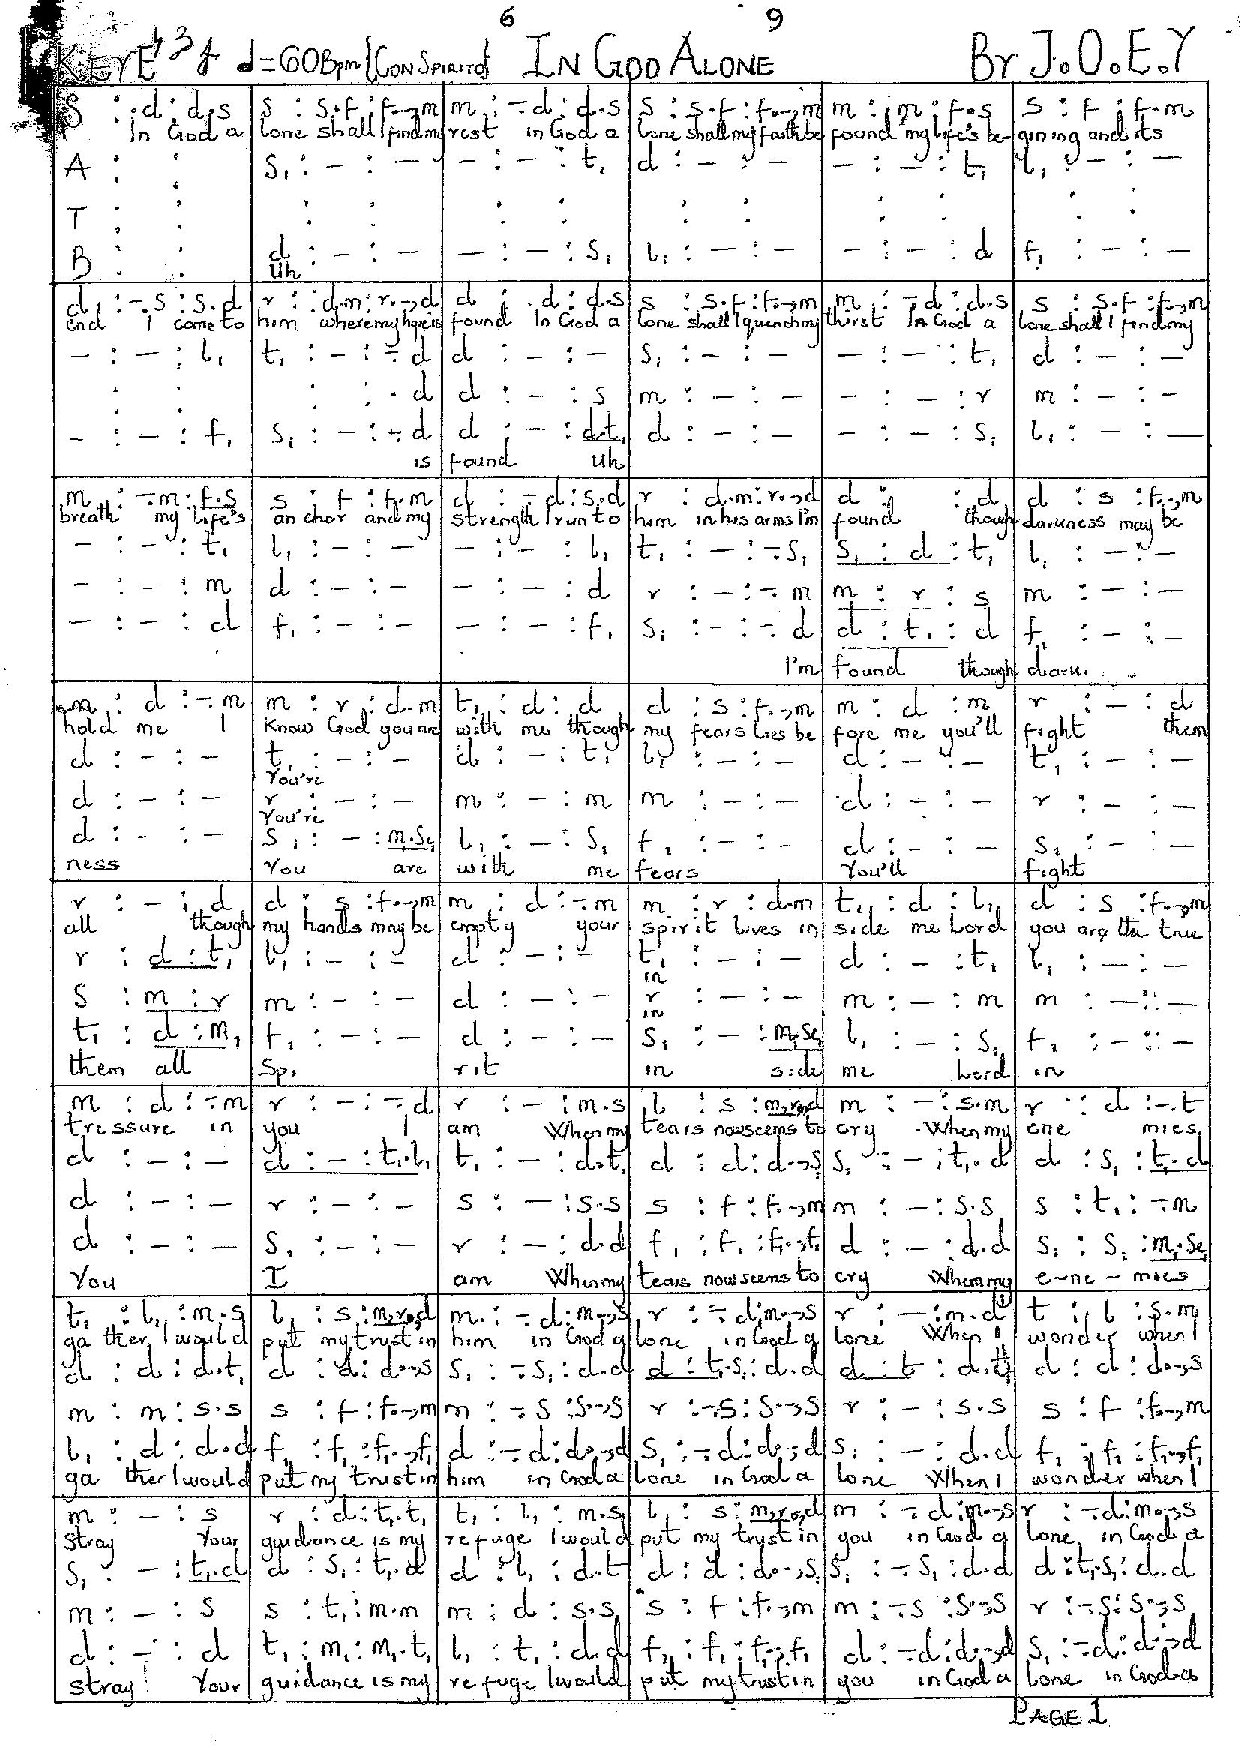 6 9
KEY E♭ 3/4 ♩=60Bpm (CON SPIRITO) IN GOD ALONE By J.O.E.Y
S : .d : d.s | s : s.f : f.,m | m : -.d : d.s | s : s.f : f.,m | m : m : f.s | s : f : f.m
In God a | lone shall I find my | rest in God a | lone shall my faith be | found my life's be- | gining and its
A : : | s₁ : - : - | - : - : t₁ | d : - : - | - : - : t₁ | l₁ : - : -
T : : | : : | : : | : : | : : | : :
B : : | d : - : - | - : - : s₁ | l₁ : - : - | - : - : d | f₁ : - : -
Uh
d : -.s : s.d | r : d.m : r.,d | d : .d : d.s | s : s.f : f.,m | m : -.d : d.s | s : s.f : f.,m
end I come to | him where my hope is | found In God a | lone shall I quench my | thirst In God a | lone shall I find my
- : - : l₁ | t₁ : - : -.d | d : - : - | s₁ : - : - | - : - : t₁ | d : - : -
: : | : : .d | d : - : s | m : - : - | - : - : r | m : - : -
- : - : f₁ | s₁ : - : -.d | d : - : d.t₁ | d : - : - | - : - : s₁ | l₁ : - : -
is | found Uh
m : -.m : f.s | s : f : f.m | d : -.d : s.d | r : d.m : r.,d | d : : d | d : s : f.,m
breath my life's | anchor and my | strength I run to | him in his arms I'm | found though | darkness may be
- : - : t₁ | l₁ : - : - | - : - : l₁ | t₁ : - : -.s₁ | s₁ : d : t₁ | l₁ : - : -
- : - : m | d : - : - | - : - : d | r : - : -.m | m : r : s | m : - : -
- : - : d | f₁ : - : - | - : - : f₁ | s₁ : - : -.d | d : t₁ : d | f₁ : - : -
I'm | found though | dark.
m : d : -.m | m : r : d.m | t₁ : d : d | d : s : f.,m | m : d : m | r : - : d
hold me I | know God you are | with me though | my fears lies be | fore me you'll | fight them
d : - : - | t₁ : - : - | d : - : t₁ | l₁ : - : - | d : - : - | t₁ : - : -
You're
d : - : - | r : - : - | m : - : m | m : - : - | d : - : - | r : - : -
You're
d : - : - | s₁ : - : m₁.se₁ | l₁ : - : s₁ | f₁ : - : - | d : - : - | s₁ : - : -
ness | You are | with me | fears | You'll | fight
r : - : d | d : s : f.,m | m : d : -.m | m : r : d.m | t₁ : d : l₁ | d : s : f.,m
all though | my hands may be | empty your | spirit lives in | side me Lord | you are the true
r : d : t₁ | l₁ : - : - | d : - : - | t₁ : - : - | d : - : t₁ | l₁ : - : -
in
s : m : r | m : - : - | d : - : - | r : - : - | m : - : m | m : - : -
in
t₁ : d : m₁ | f₁ : - : - | d : - : - | s₁ : - : m₁.se₁ | l₁ : - : s₁ | f₁ : - : -
them all | Spi | rit | in side | me Lord | in
m : d : -.m | r : - : -.d | r : - : m.s | l : s : m.r,d | m : - : s.m | r : d : -.t
tressure in | you I | am When my | tears now seems to | cry When my | ene mies
d : - : - | d : - : t₁.l₁ | t₁ : - : d.t₁ | d : d : d.,s₁ | s₁ : - : t₁.d | d : s₁ : t₁.d
d : - : - | r : - : - | s : - : s.s | s : f : f.,m | m : - : s.s | s : t₁ : -.m
d : - : - | s₁ : - : - | r : - : d.d | f₁ : f₁ : f₁.,f₁ | d : - : d.d | s₁ : s₁ : m₁.se₁
You | I | am When my | tears now seems to | cry When my | e-ne-mies
t₁ : l₁ : m.s | l : s : m.r,d | m : -.d : m.,s | r : -.d : m.,s | r : - : m.d | t : l : s.m
ga ther, I would | put my trust in | him in God a | lone in God a | lone When I | wonder when I
d : d : d.t₁ | d : d : d.,s | s₁ : -.s₁ : d.d | d : t₁.s₁ : d.d | d : t : d.t | d : d : d.,s
m : m : s.s | s : f : f.,m | m : -.s : s.,s | r : -.s : s.,s | r : - : s.s | s : f : f.,m
l₁ : d : d.d | f₁ : f₁ : f₁.,f₁ | d : -.d : d.,d | s₁ : -.d : d.,d | s₁ : - : d.d | f₁ : f₁ : f₁.,f₁
ga ther I would | put my trust in | him in God a | lone in God a | lone When I | wonder when I
m : - : s | r : d : t₁.t₁ | t₁ : l₁ : m.s | l : s : m.r,d | m : -.d : m.,s | r : -.d : m.,s
Stray Your | guidance is my | refuge I would | put my trust in | you in God a | lone, in God a
s₁ : - : t₁.d | d : s₁ : t₁.d | d : l₁ : d.t | d : d : d.,s₁ | s₁ : -.s₁ : d.d | d : t₁.s₁ : d.d
m : - : s | s : t₁ : m.m | m : d : s.s | s : f : f.,m | m : -.s : s.,s | r : -.s : s.,s
d : - : d | t₁ : m₁ : m₁.t₁ | l₁ : t₁ : d.d | f₁ : f₁ : f₁.,f₁ | d : -.d : d.,d | s₁ : -.d : d.,d
stray! Your | guidance is my | refuge I would | put my trust in | you in God a | lone in God a
PAGE 1